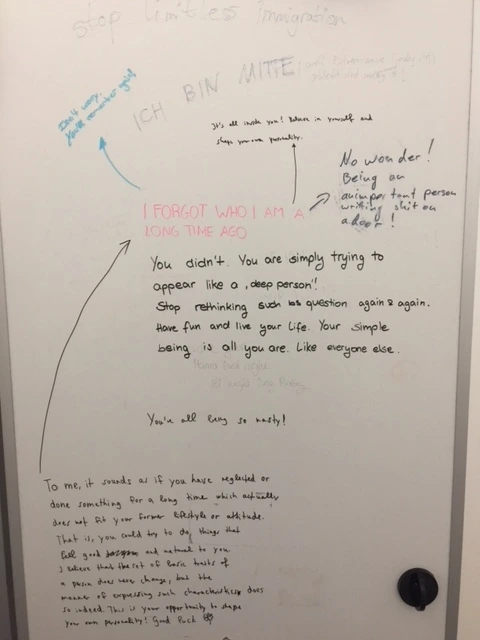 stop limitless immigration
ICH BIN MITTE
Don't worry,
you'll remember again!
It's all inside you! Believe in yourself and
shape your own personality.
No wonder!
Being an
unimportant person
writing shit on
a door!
I FORGOT WHO I AM A
LONG TIME AGO
You didn't. You are simply trying to
appear like a "deep person"!
Stop rethinking such question again & again.
Have fun and live your Life. Your simple
being is all you are. Like everyone else.
You're all being so nasty!
To me, it sounds as if you have neglected or
done something for a long time which actually
does not fit your former lifestyle or attitude.
That is, you could try to do things that
feel good and natural to you.
I believe that the set of basic traits of
a person does never change, but the
manner of expressing such characteristics does
so indeed. This is your opportunity to shape
your own personality! Good luck